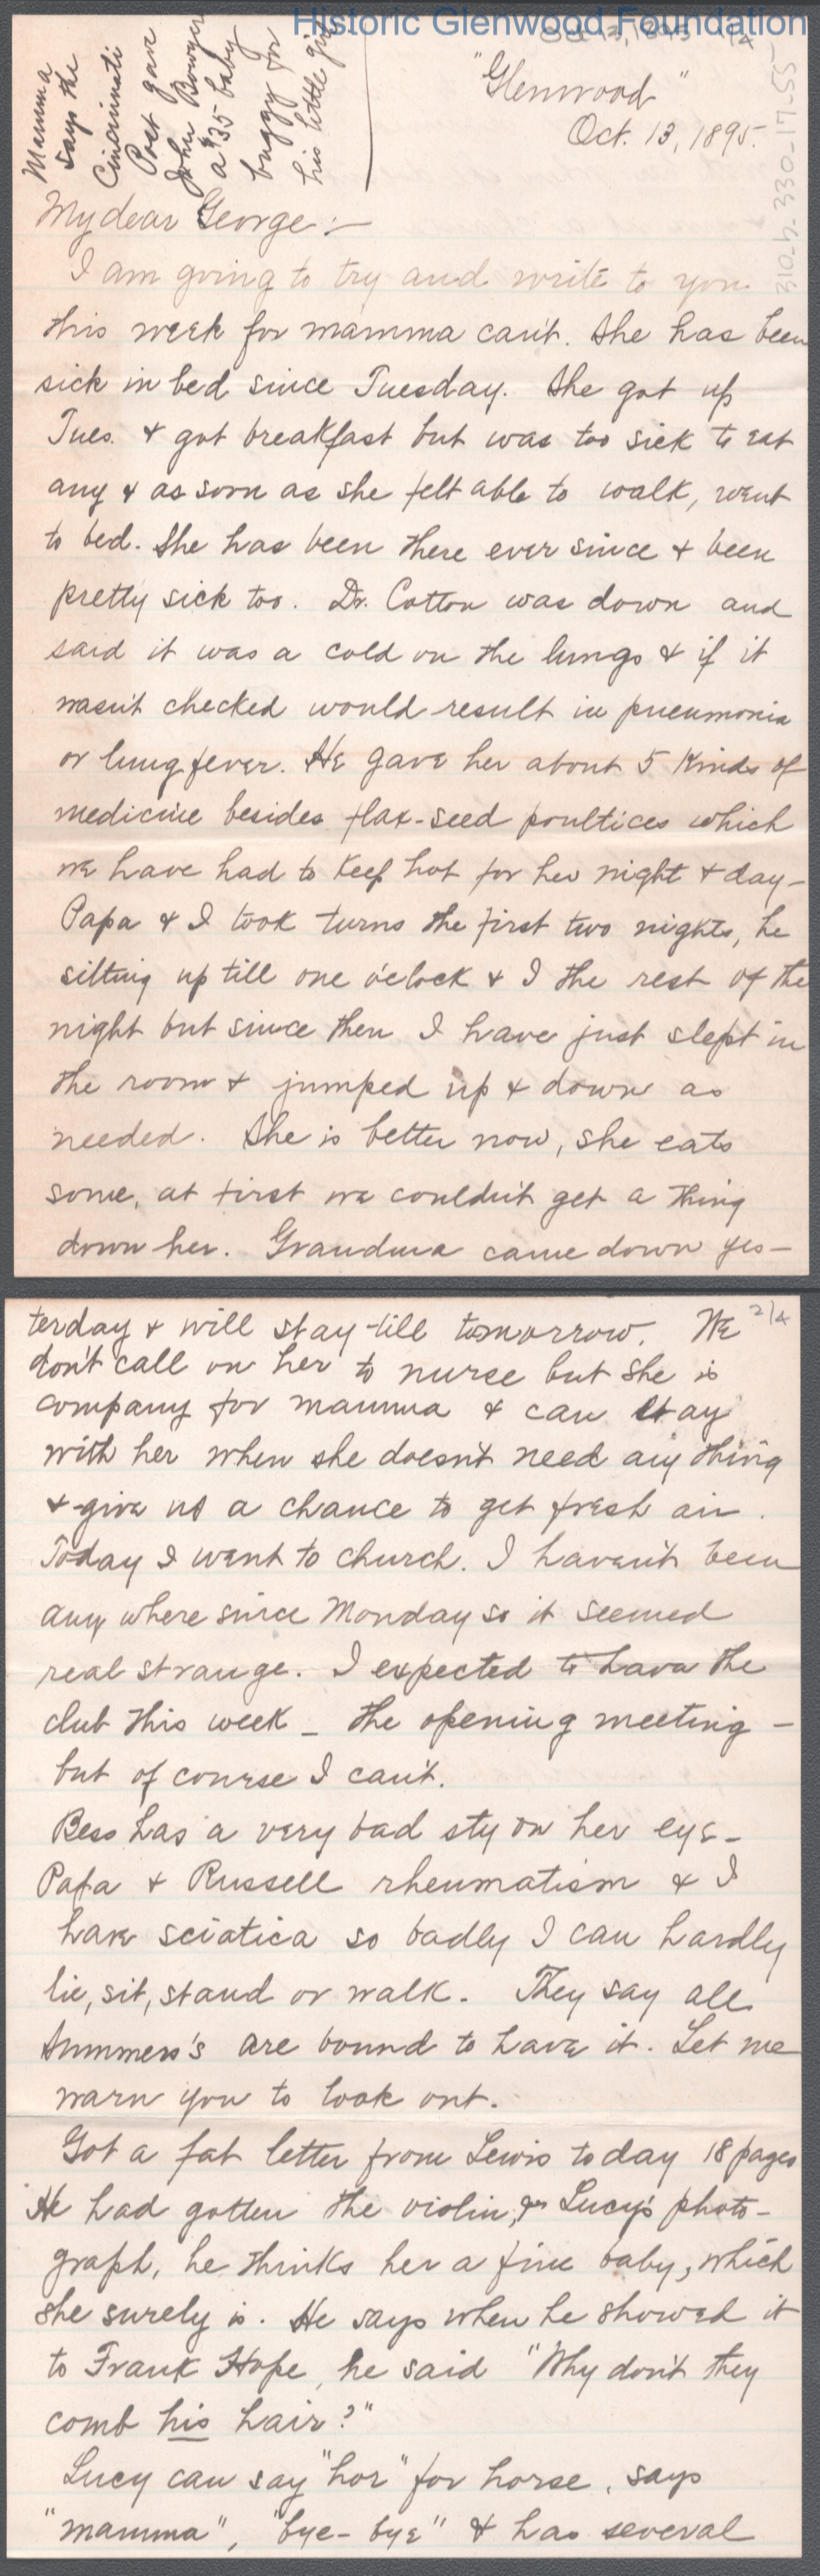 Historic Glenwood Foundation
Oct. 13, 1895 1/4
310-h-330-17-55
Mamma
says the
Cincinnati
Post gave
John Bowyer
a $35 baby
buggy for
his little girl
"Glenwood"
Oct. 13, 1895.
My dear George:-
I am going to try and write to you
this week for mamma can't. She has been
sick in bed since Tuesday. She got up
Tues. & got breakfast but was too sick to eat
any & as soon as she felt able to walk, went
to bed. She has been there ever since & been
pretty sick too. Dr. Cotton was down and
said it was a cold on the lungs & if it
wasn't checked would result in pneumonia
or lung fever. He gave her about 5 kinds of
medicine besides flax-seed poultices which
we have had to keep hot for her night & day-
Papa & I took turns the first two nights, he
sitting up till one o'clock & I the rest of the
night but since then I have just slept in
the room & jumped up & down as
needed. She is better now, she eats
some, at first we couldn't get a thing
down her. Grandma came down yes-
2/4
terday & will stay till tomorrow. We
don't call on her to nurse but she is
company for mamma & can stay
with her when she doesn't need any thing
& give us a chance to get fresh air.
Today I went to church. I haven't been
any where since Monday so it seemed
real strange. I expected to have the
club this week - the opening meeting -
but of course I can't.
Bess has a very bad sty on her eye-
Papa & Russell rheumatism & I
have sciatica so badly I can hardly
lie, sit, stand or walk. They say all
Summers's are bound to have it. Let me
warn you to look out.
Got a fat letter from Lewis today 18 pages
He had gotten the violin, & Lucy's photo-
graph, he thinks her a fine baby, which
she surely is. He says when he showed it
to Frank Hope, he said "Why don't they
comb his hair?"
Lucy can say "hor" for horse, says
"mamma", "bye-bye" & has several